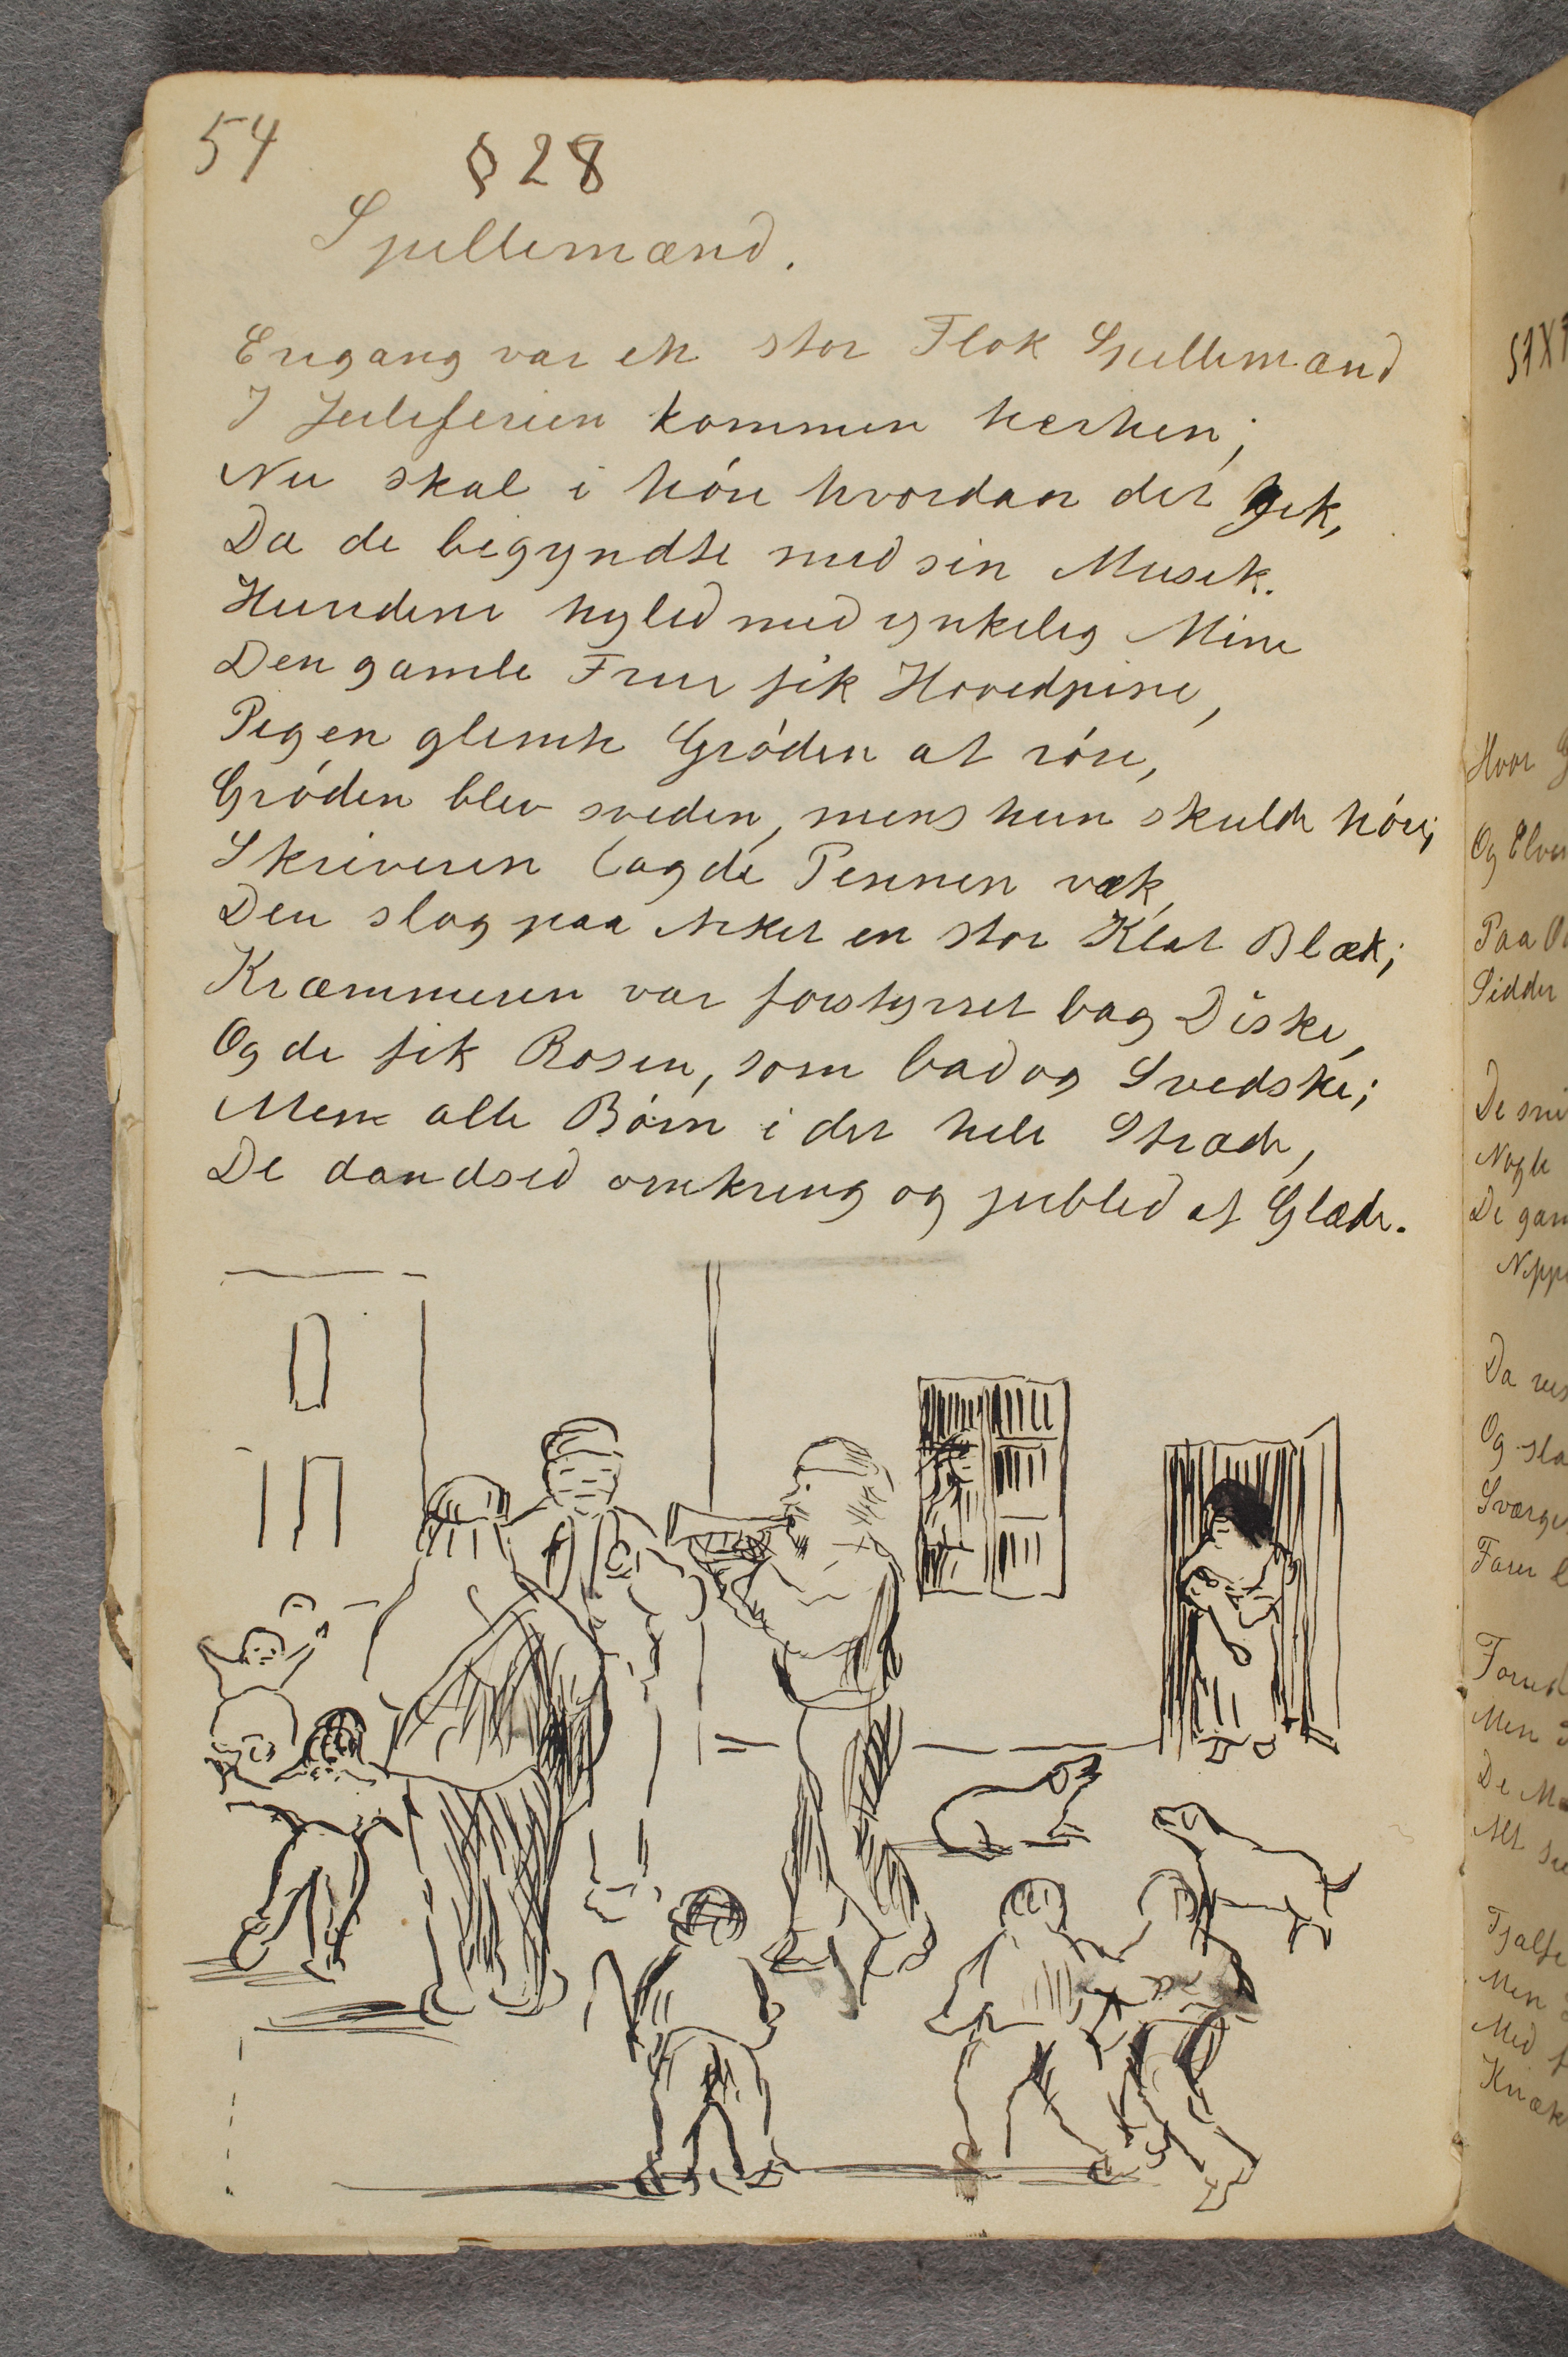 54
§ 28
Spillemænd.
Engang var en stor Flok Spillemænd
I Juleferien kommen herhen;
Nu skal i hóre hvordan det gik,
Da de begyndte med sin Musik.
Hundene hyled med ynkelig Mine
Den gamle Frue fik Hovedpine,
Pigen glemte Gróden at róre,
Gróden blev sveden, mens hun skulde hóre;
Skriveren lagde Pennen væk,
Den slog paa Arket en stor Klat Blæk;
Kræmmeren var forstyrret bag Diske,
Og de fik Rosin, som bad og Svedske;
Mens alle Bórn i det hele Stræde,
De dandsed omkring og jubled af Glæde.
Hvor
Og Elven
Paa
Sidder
De
Nogle
De gam
Da
Og sla
Sværge
Farer
Forud
Men
De
Alt
Tjalfe
Men
Med
Knæk